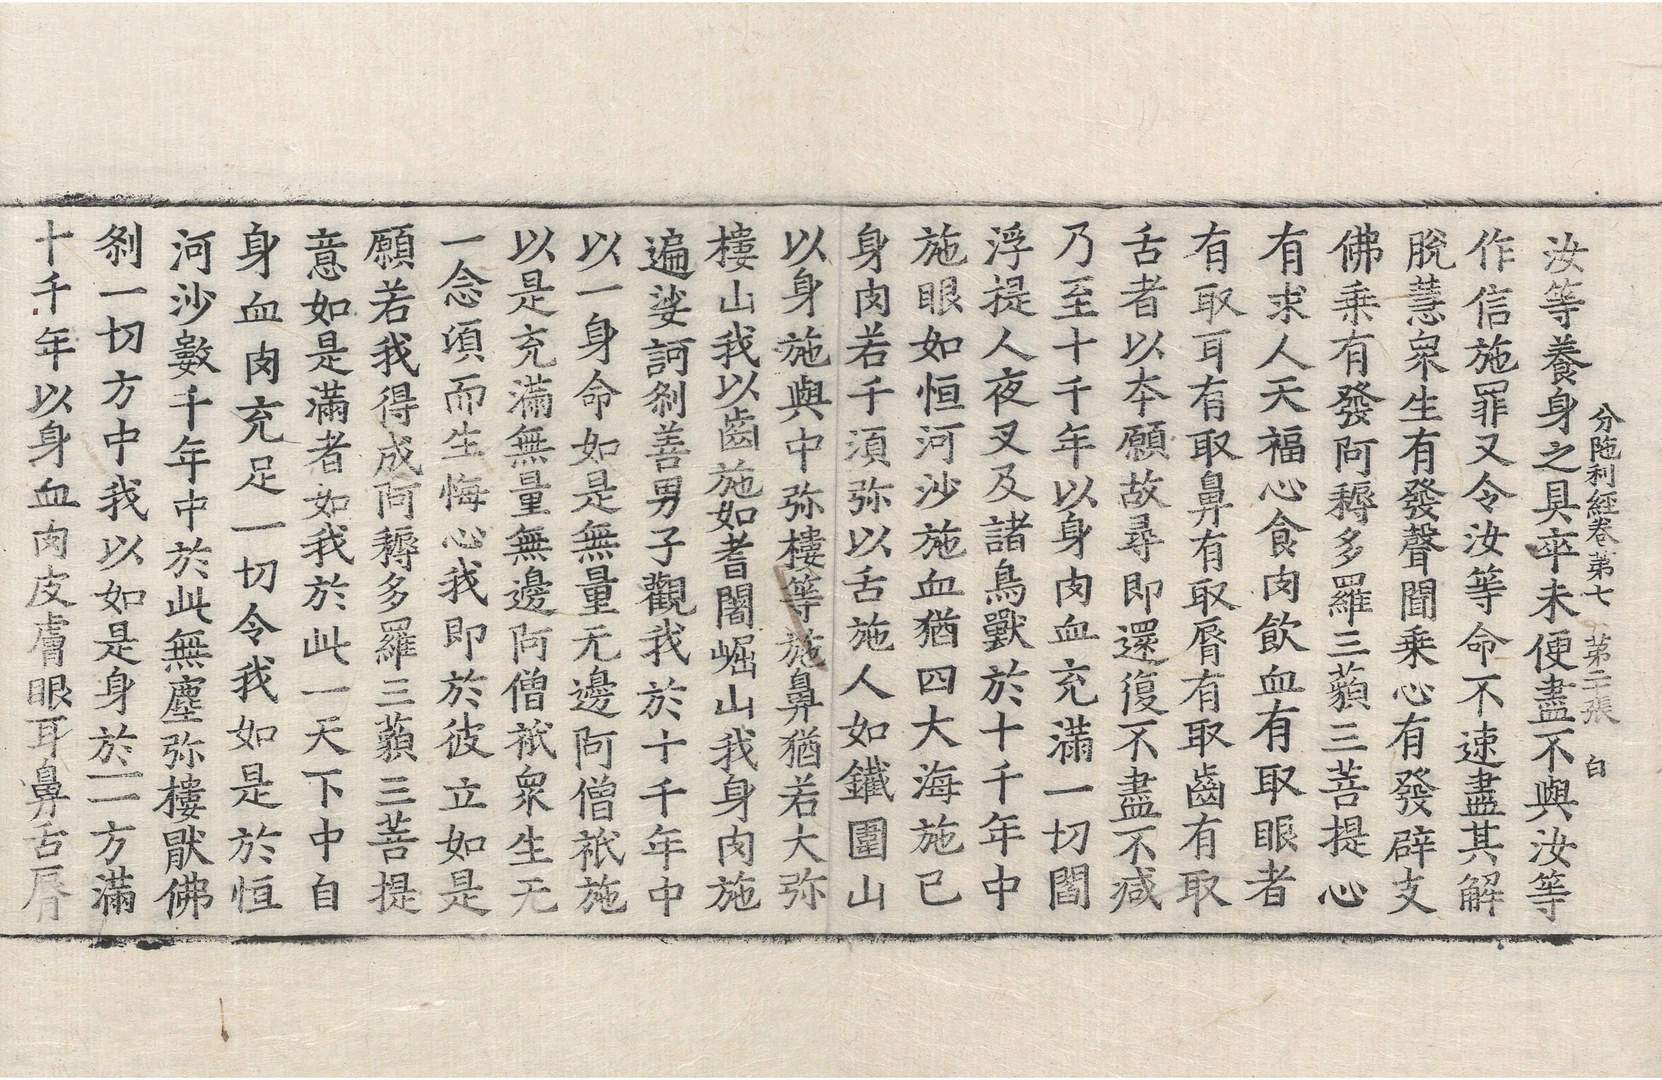 分陁利經卷第七　第二張　白
汝等養身之具卒未便盡不與汝等
作信施罪又令汝等命不速盡其解
脫慧衆生有發聲聞乘心有發辟支
佛乘有發阿耨多羅三藐三菩提心
有求人天福心食肉飲血有取眼者
有取耳有取鼻有取脣有取齒有取
舌者以本願故尋即還復不盡不減
乃至十千年以身肉血充滿一切閻
浮提人夜叉及諸鳥獸於十千年中
施眼如恒河沙施血猶四大海施己
身肉若千須弥以舌施人如鐵圍山
以身施與中弥樓等施鼻猶若大弥
樓山我以齒施如耆闍崛山我身肉施
遍娑訶剎善男子觀我於十千年中
以一身命如是無量无邊阿僧祇施
以是充滿無量無邊阿僧祇衆生无
一念須而生悔心我即於彼立如是
願若我得成阿耨多羅三藐三菩提
意如是滿者如我於此一天下中自
身血肉充足一切令我如是於恒
河沙數千年中於此無塵弥樓猒佛
剎一切方中我以如是身於一一方滿
十千年以身血肉皮膚眼耳鼻舌脣